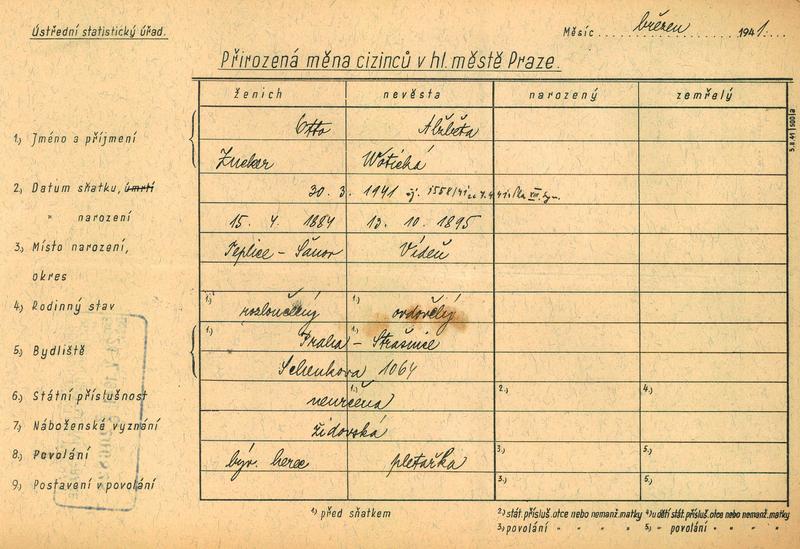 Ústřední statistický úřad.
Měsíc březen 1941.
Přirozená měna cizinců v hl. městě Praze.
ženich nevěsta narozený zemřelý
1.) Jméno a příjmení
Otto Alžběta
Zucker Wotická
2.) Datum sňatku, úmrtí 30. 3. 1941
" narození 15. 4. 1884 13. 10. 1895
3.) Místo narození, Teplice – Šanov Vídeň
okres
4.) Rodinný stav 1.) rozloučený 1.) ovdovělý
5.) Bydliště 1.) Praha – 1.) Strašnice
Schenkova 1064
6.) Státní příslušnost 1.) neurčena 2.) 4.)
7.) Náboženské vyznání židovská
8.) Povolání býv. herec pletařka 3.) 5.)
9.) Postavení v povolání 3.) 5.)
1.) před sňatkem
2.) stát. přísluš. otce nebo nemanž. matky 4.) u dětí stát. přísluš. otce nebo nemanž. matky
3.) povolání " " " " 5.) – povolání " " " "